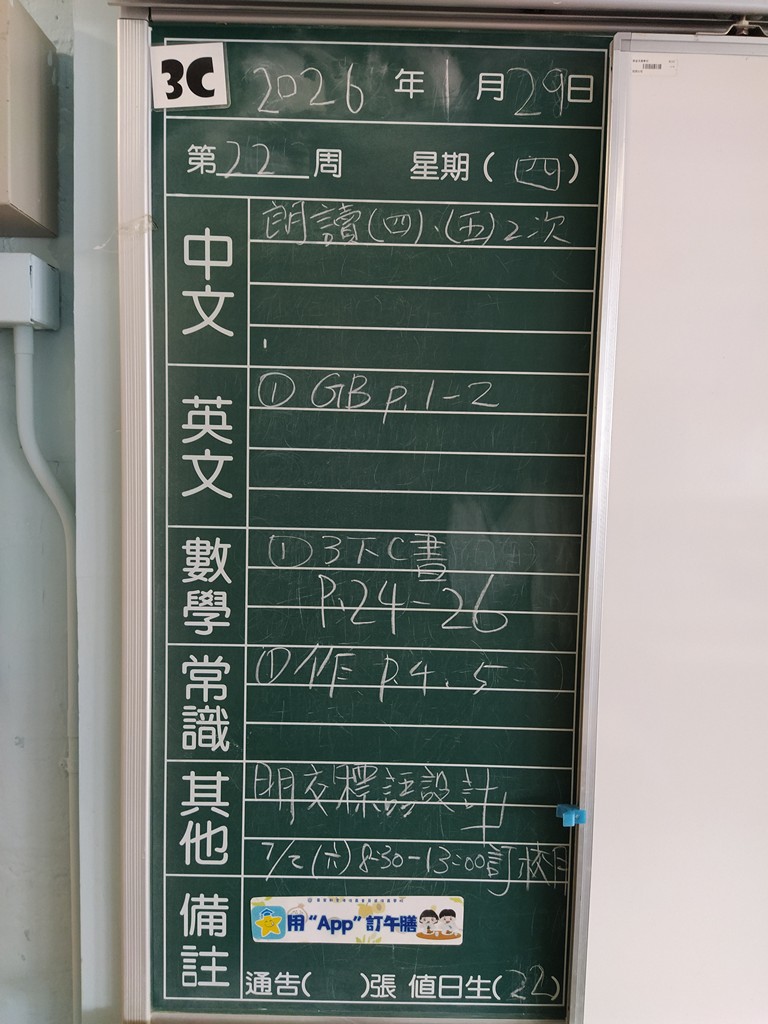 3C
2026年1月29日
第22周 星期(四)
中文
朗讀(四)、(五)2次
英文
① GB p.1-2
數學
①3下C書
P.24-26
常識
①作 p.4、5
其他
明交標語設計
7/2(六)8:30-13:00訂校
備註
用“App”訂午膳
通告( )張 值日生(22)